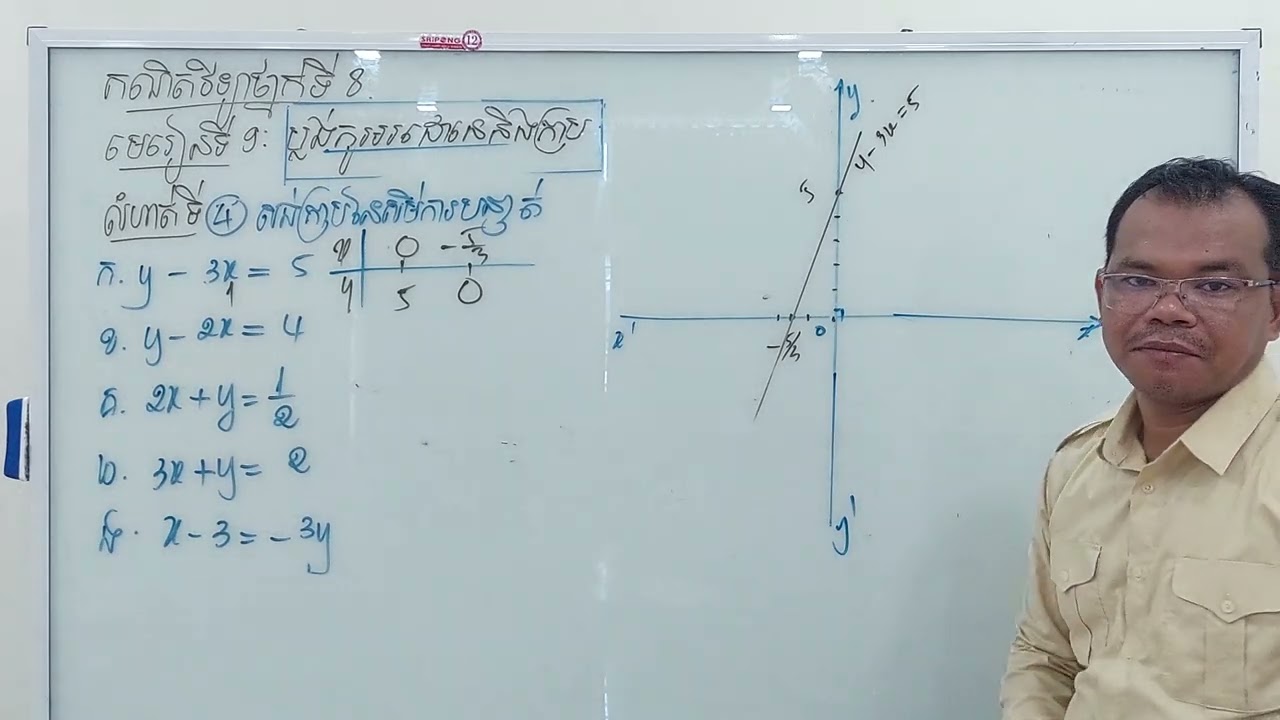 SRIPONG 12
គណិតវិទ្យាថ្នាក់ទី 8.
មេរៀនទី 9: ប្លង់កូអរដោនេនិងក្រាប
លំហាត់ទី 4 សង់ក្រាបនៃសមីការបន្ទាត់
ក. y - 3x = 5
x 0 -5/3
y 5 0
ខ. y - 2x = 4
គ. 2x + y = 1/2
ឃ. 3x + y = 2
ង. x - 3 = - 3y
y
y - 3x = 5
5
x' -5/3 0 1 x
y'